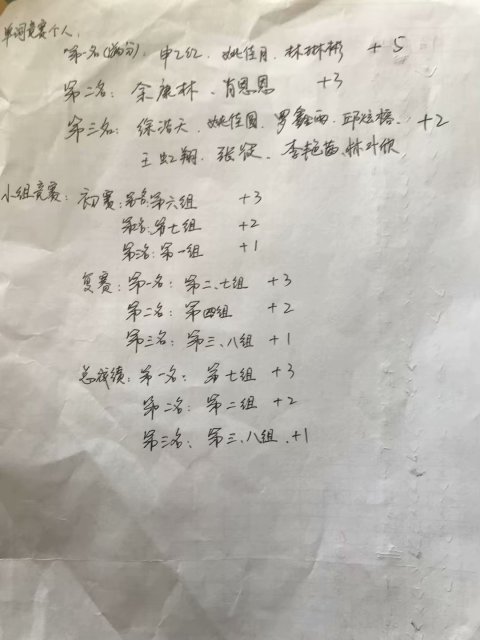 单词竞赛个人:
第一名(满分): 申红红、姚佳月、林彬彬 +5
第二名: 余康林、肖恩恩 +3
第三名: 徐浩天、姚佳圆、罗鑫雨、邱 +2
王虹翔、张 、李艳茜、林
小组竞赛: 初赛: 第一名: 第六组 +3
第二名: 第七组 +2
第三名: 第一组 +1
复赛: 第一名: 第二、七组 +3
第二名: 第四组 +2
第三名: 第三、八组 +1
总成绩: 第一名: 第七组 +3
第二名: 第二组 +2
第三名: 第三、八组、+1